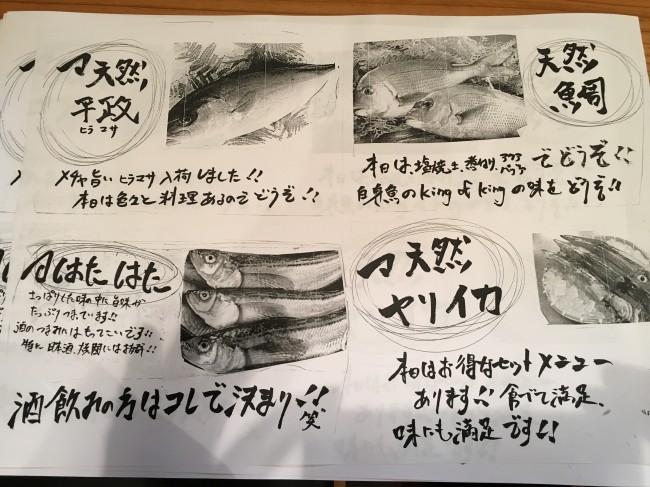 天然
平政
ヒラマサ
メチャ旨いヒラマサ入荷しました!!
本日は色々と料理あるのでどうぞ!!
天然
真鯛
本日は、塩焼き、煮付け、アクアパッツァでどうぞ!!
白身魚のKing of Kingの味をどうぞ!!
はたはた
さっぱりした味の中に旨味が
たっぷりつまってます!!
酒のつまみにはもってこいです!!
特に日本酒、
酒飲みの方はコレで決まり!!
笑
天然
ヤリイカ
本日はお得なセットメニュー
あります!! 食べて満足、
味にも満足です!!